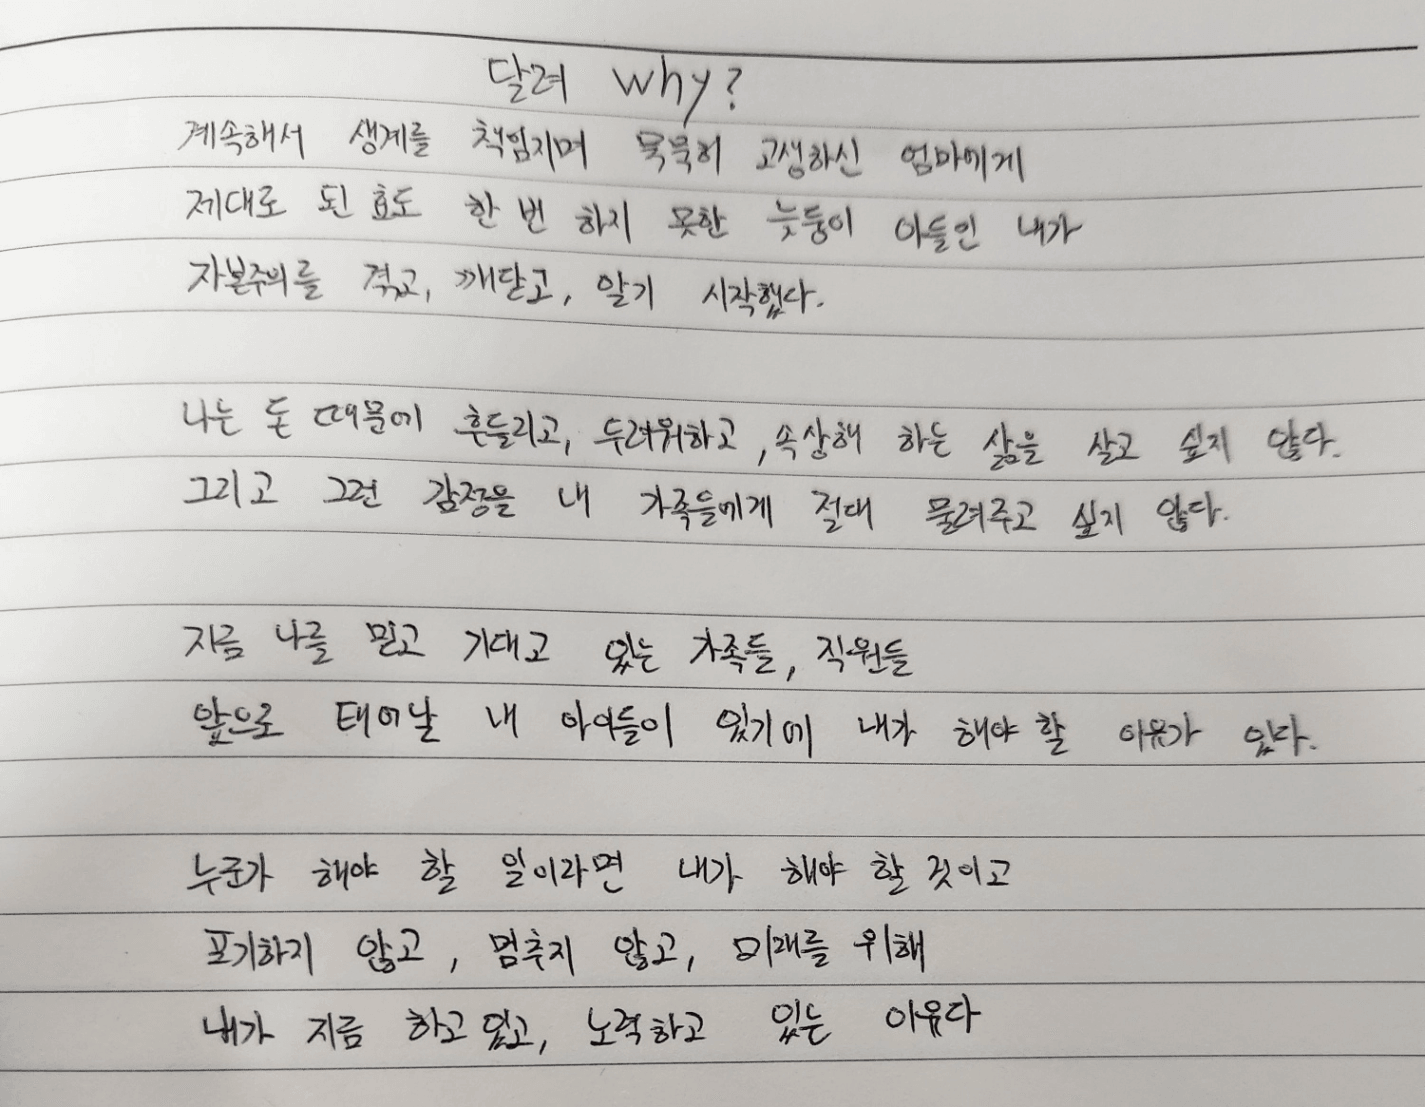 달려 why?
계속해서 생계를 책임지며 묵묵히 고생하신 엄마에게
제대로 된 효도 한 번 하지 못한 늦둥이 아들인 내가
자본주의를 겪고, 깨닫고, 알기 시작했다.
나는 돈 때문에 흔들리고, 두려워하고, 속상해 하는 삶을 살고 싶지 않다.
그리고 그런 감정을 내 가족들에게 절대 물려주고 싶지 않다.
지금 나를 믿고 기대고 있는 가족들, 직원들
앞으로 태어날 내 아이들이 있기에 내가 해야 할 이유가 있다.
누군가 해야 할 일이라면 내가 해야 할 것이고
포기하지 않고, 멈추지 않고, 미래를 위해
내가 지금 하고 있고, 노력하고 있는 이유다